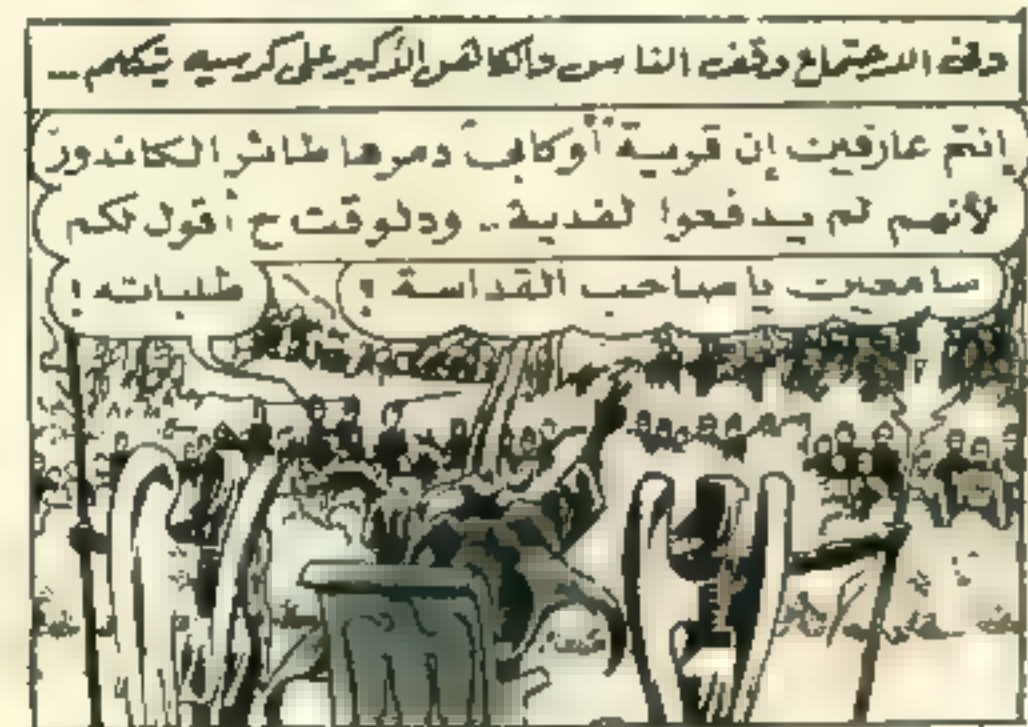 وقف الاجتماع وقف الناس والكاهن الأكبر على كرسيه يتكلم ...
إنتم عارفين إن قرية أوكاب دمرها طائر الكاندور
لأنهم لم يدفعوا الفدية .. ودلوقت ح أقول لكم
طلباته !
سامعين يا صاحب القداسة !